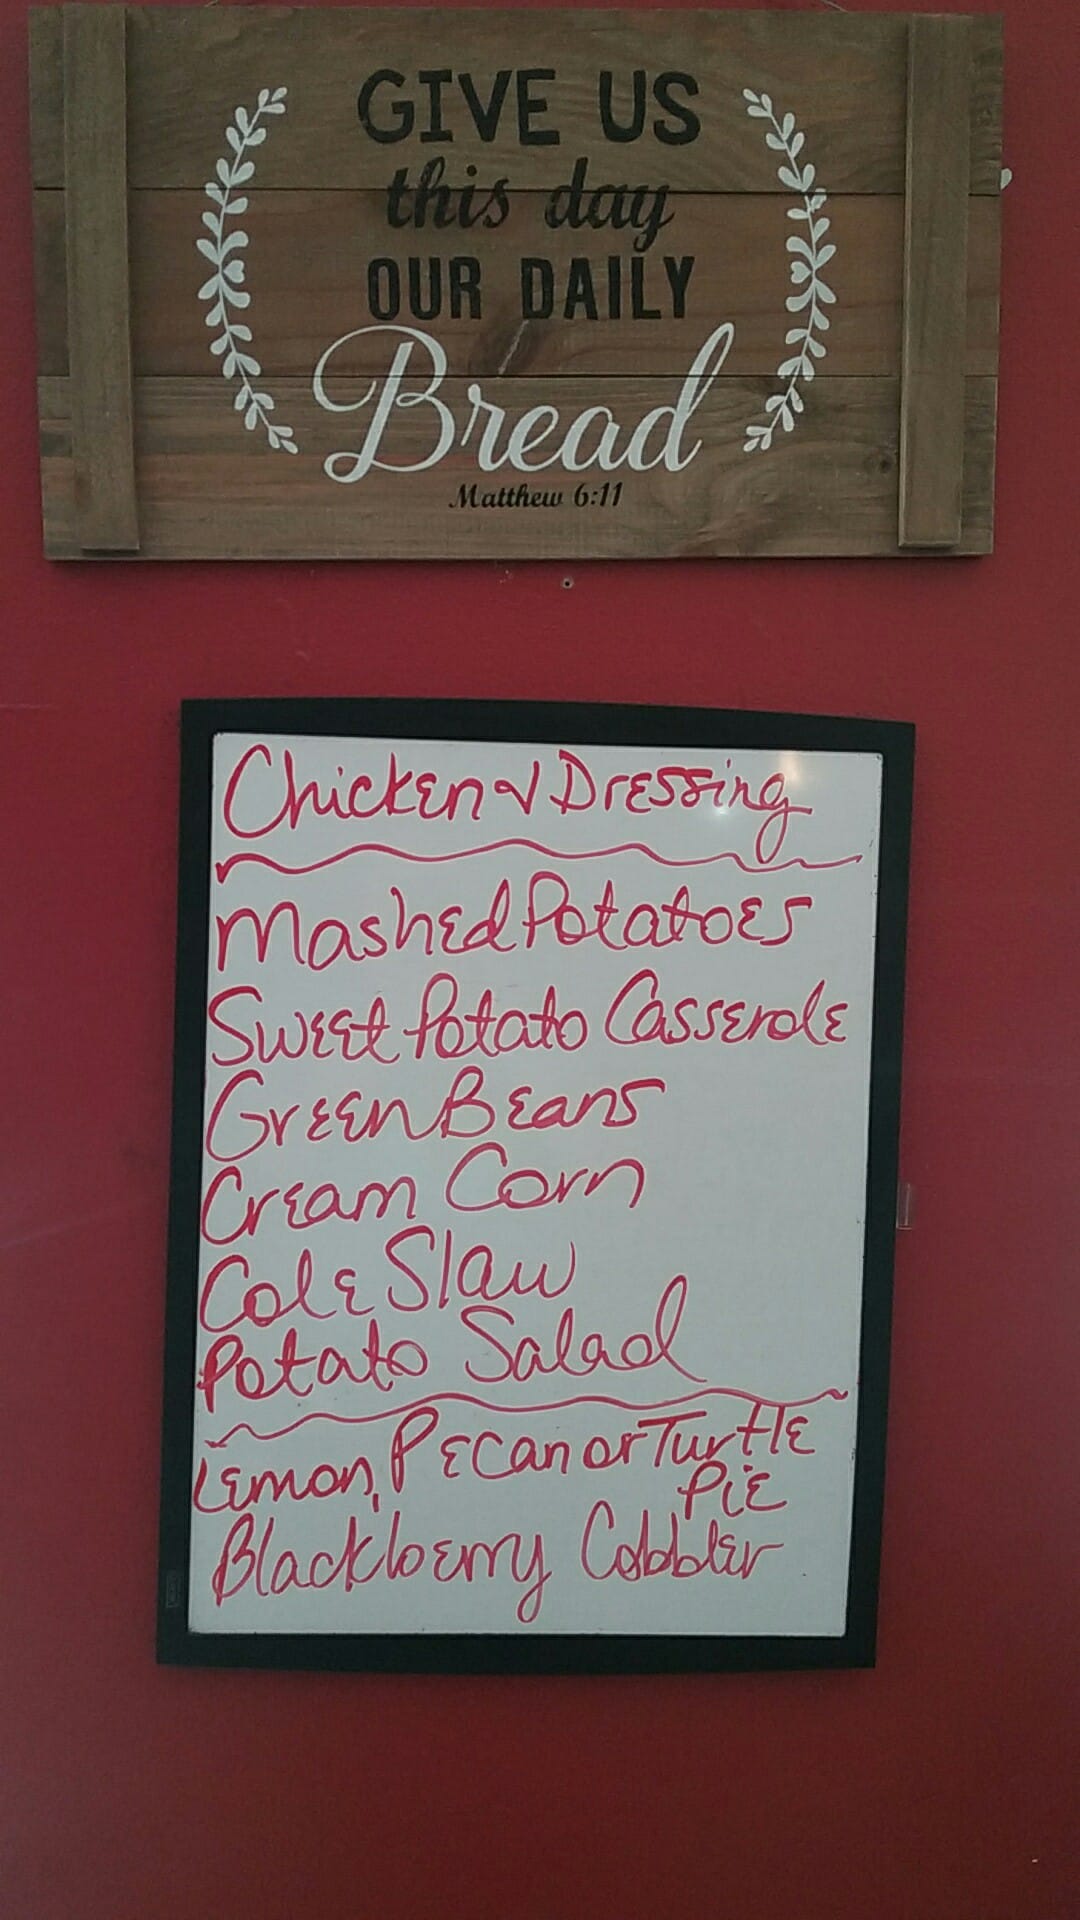 GIVE US
this day
OUR DAILY
Bread
Matthew 6:11
Chicken & Dressing
Mashed Potatoes
Sweet Potato Casserole
Green Beans
Cream Corn
Cole Slaw
Potato Salad
Lemon, Pecan or Turtle
Pie
Blackberry Cobbler